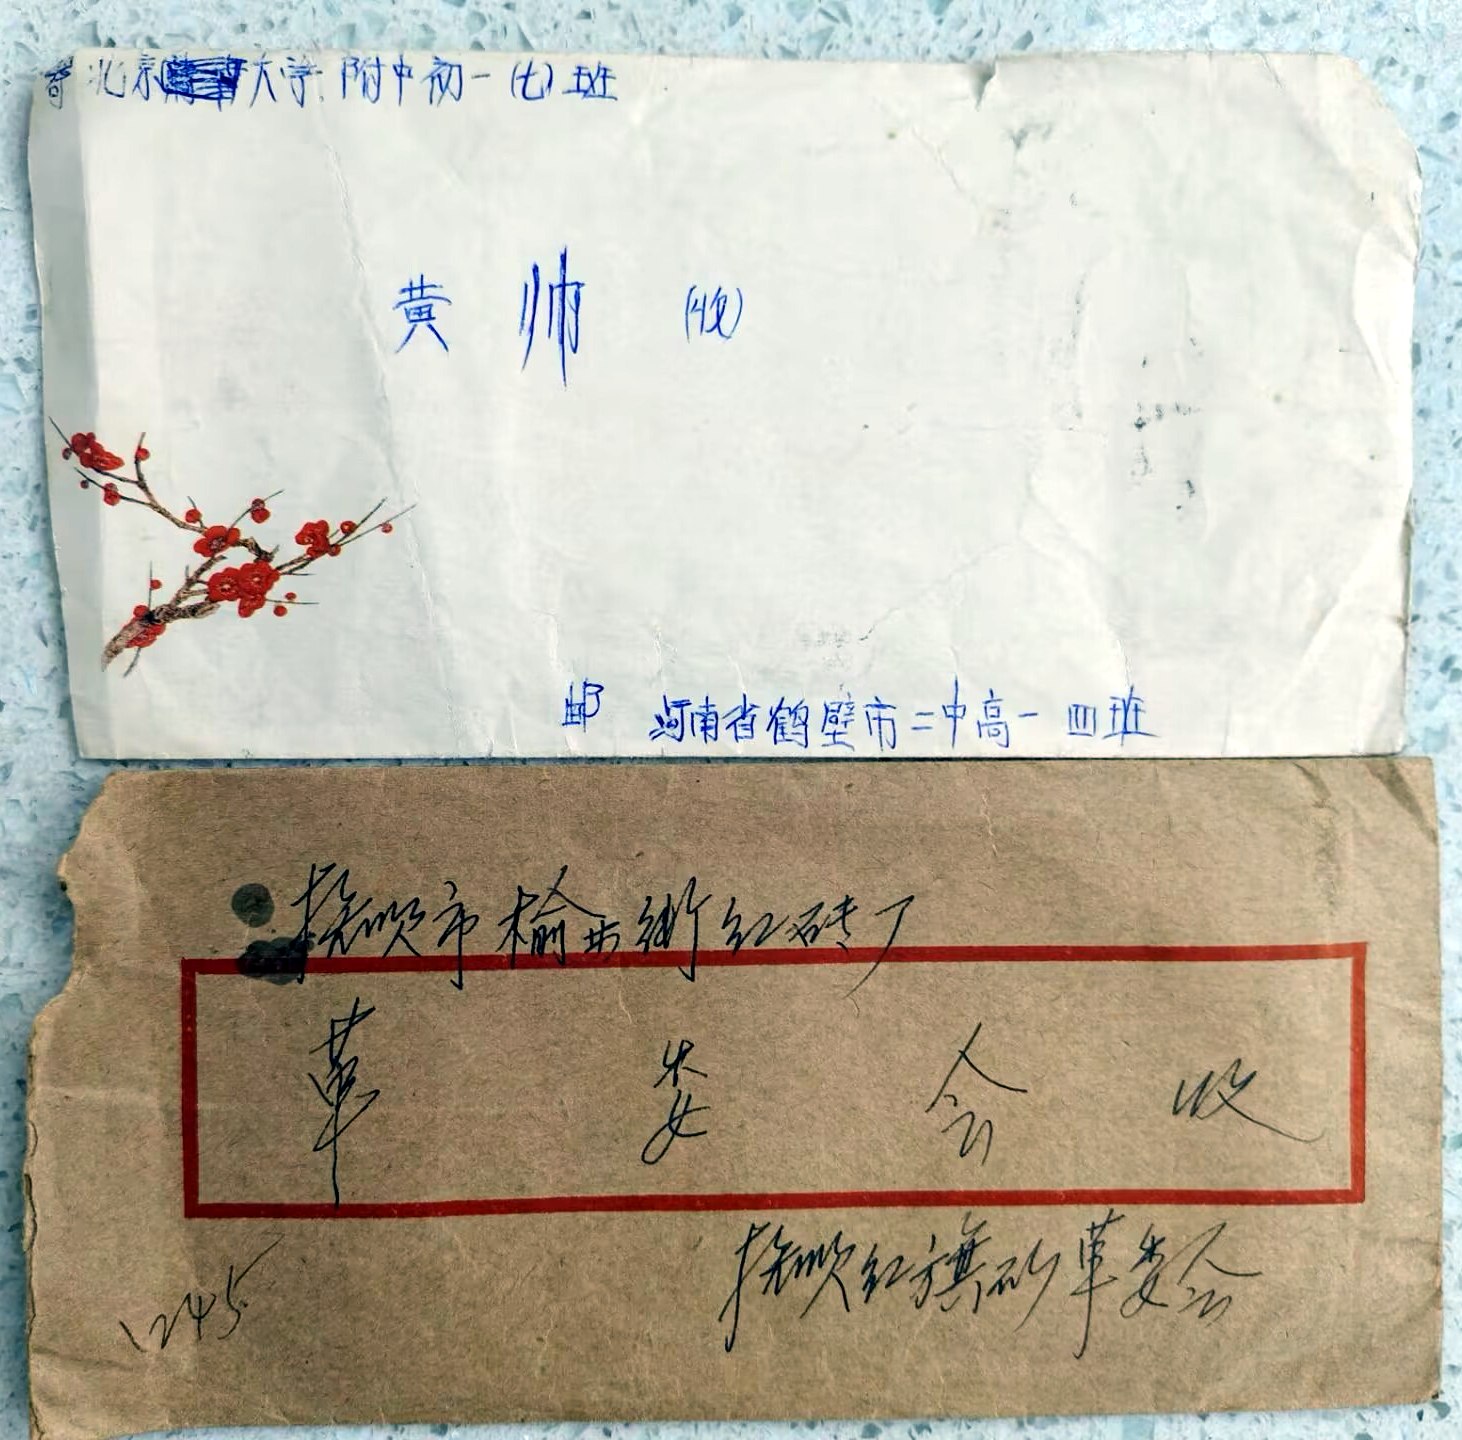 寄北京大学附中初一(七)班
黄帅(收)
邮 河南省鹤壁市二中高一四班
抚顺市榆林街红砖厂
革委会收
抚顺红旗矿革委会
1245